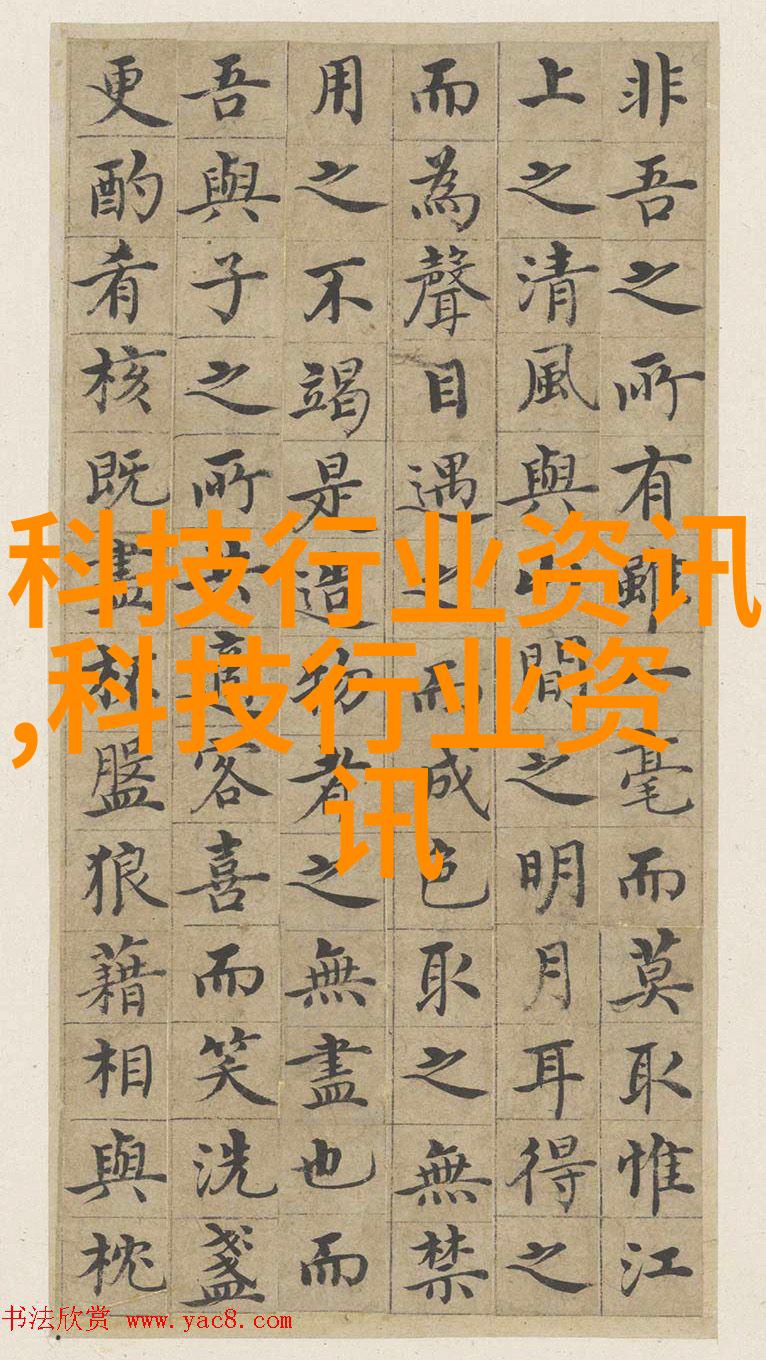 非吾之所有雖一毫而莫取惟江
上之清風與山間之明月耳得之
而為聲目遇之而成色取之無禁
用之不竭是造物者之無盡也而
吾與子之所共適客喜而笑洗盞
更酌肴核既盡杯盤狼藉相與枕
科技行业资讯
,科技行业资
讯
书法欣赏 www.yac8.com